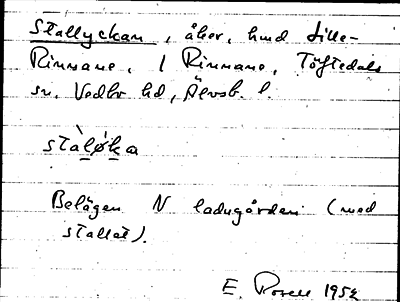 Stallyckan, åker, hmd Lille-
Rinnane, / Rinnane, Töftedals
sn. Vedbo hd, Älvsb. l.
stàløka
Belägen N ladugården (med
stallet).
E. Rosell 1952